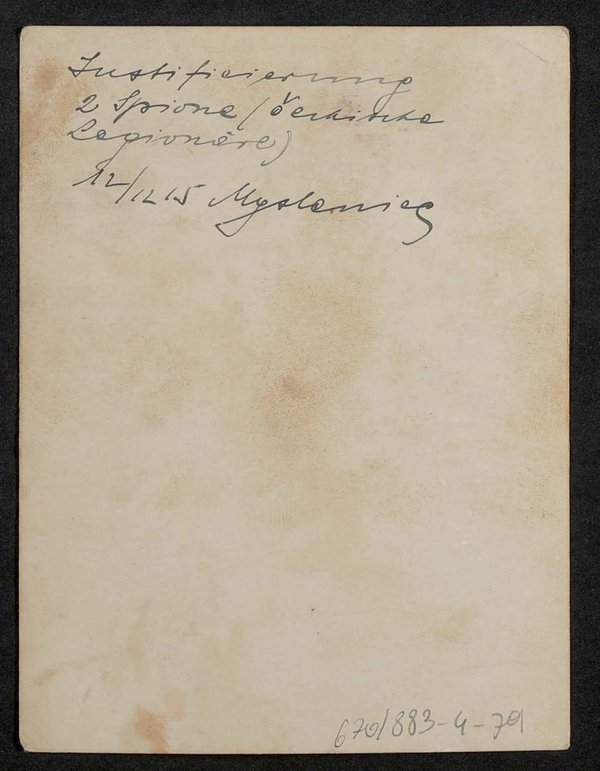 Justificierung
2 Spione (česhische
Legionäre)
12/12 15 Myslenieg
670/883-4-79